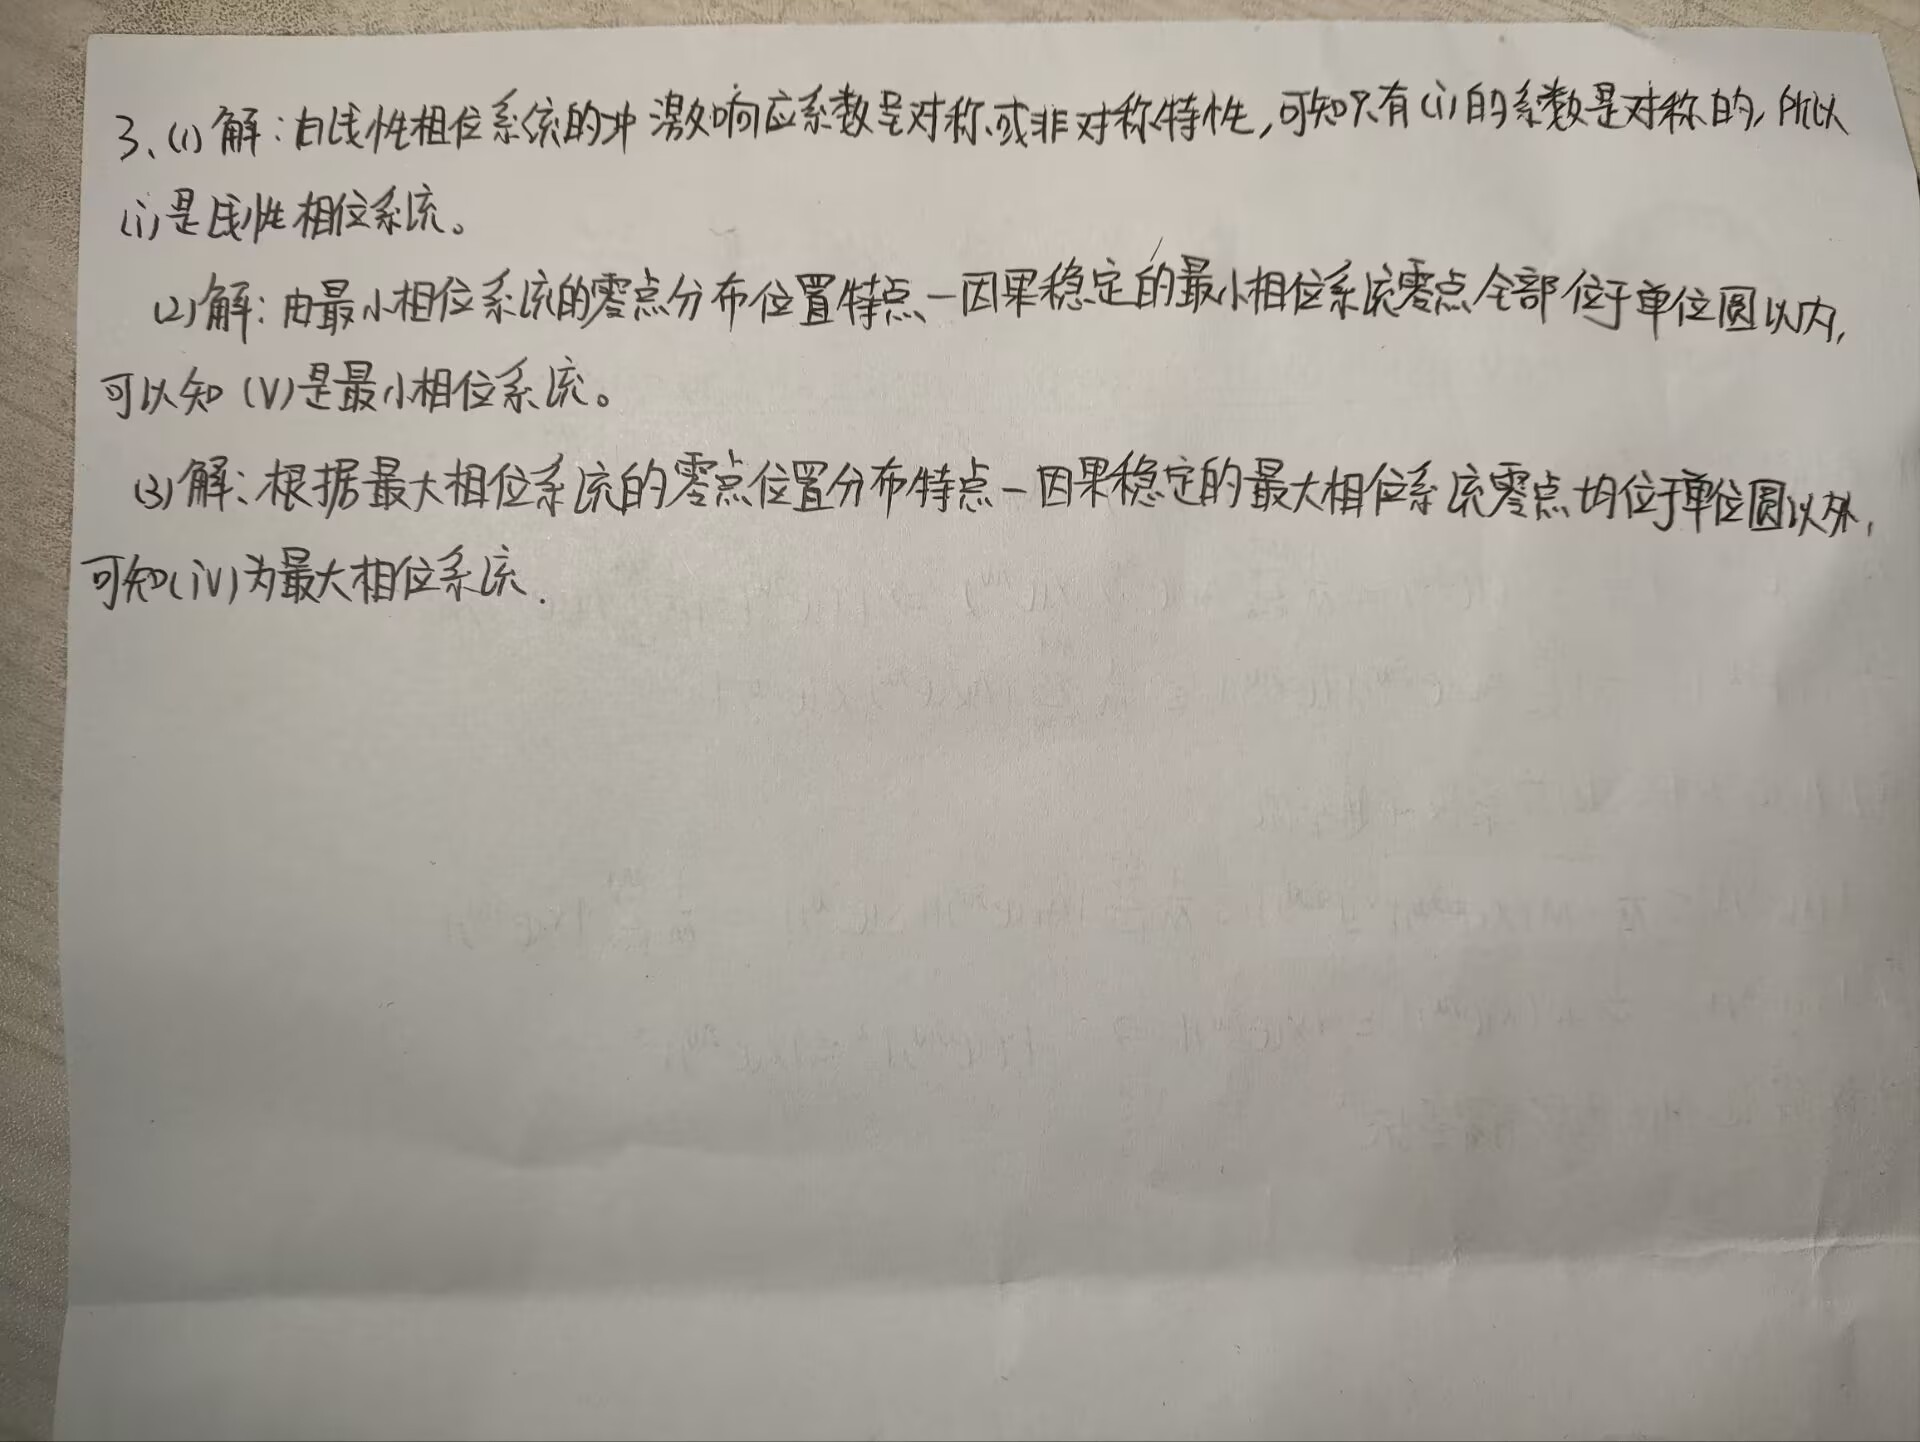 3、(1)解:由线性相位系统的冲激响应系数呈对称或非对称特性,可知只有(i)的系数是对称的,所以
(i)是线性相位系统。
(2)解:由最小相位系统的零点分布位置特点—因果稳定的最小相位系统零点全部位于单位圆以内,
可以知(V)是最小相位系统。
(3)解:根据最大相位系统的零点位置分布特点—因果稳定的最大相位系统零点均位于单位圆以外,
可知(iV)为最大相位系统.